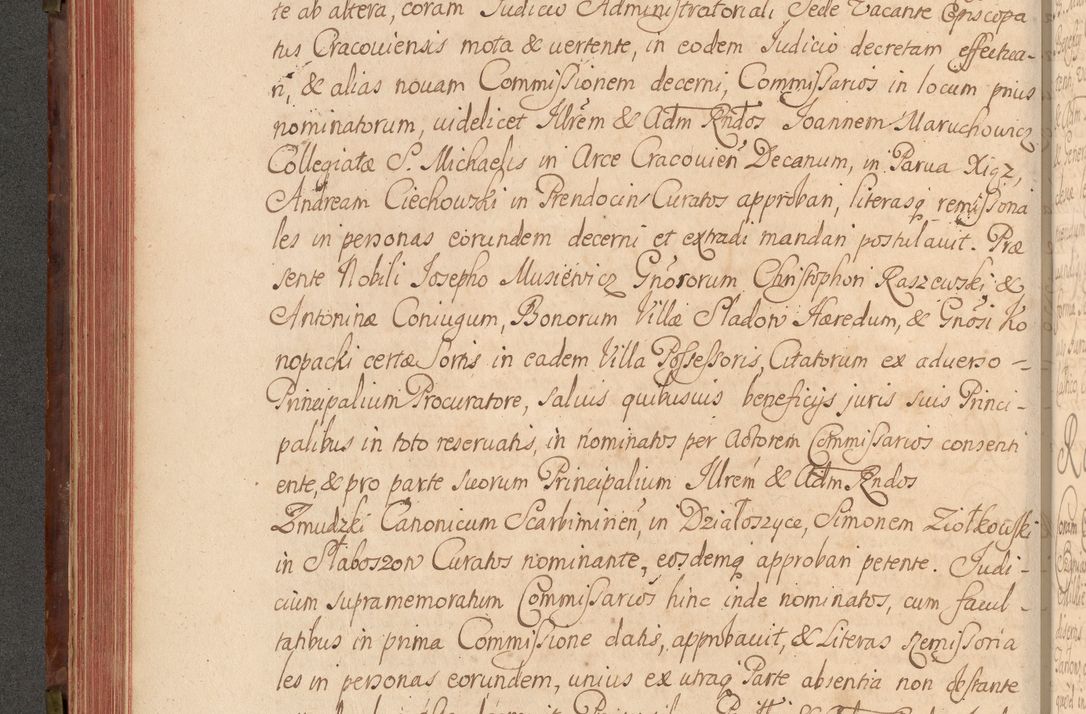 te ab altera, coram Judicio Administratoriali Sede Vacante Episcopa
tus Cracoviensis mota & vertente, in eodem Judicio decretam effectua-
ri, & alias novam Commissionem decerni, Commissarios in locum prius
nominatorum, videlicet Illrem & Adm Rndos Joannem Maruchowicz
Collegiatæ S. Michaelis in Arce Cracovien Decanum, in Parva Xiąz,
Andream Ciechowski in Prendocin Curatos approbari, literasq remissoria
les in personas eorundem decerni et extradi mandari postulavit. Præ
sente Nobili Josepho Musiewicz Gnosorum Christophori Raszewski &
Antoninæ Coniugum, Bonorum Villæ Sladow Hæredum, & Gnosi Ko
nopacki certæ Sortis in eadem Villa Possessoris, Citatorum ex adverso =
Principalium Procuratore, salvis quibusvis beneficijs juris suis Princi-
palibus in toto reservatis, in nominatos per Actorem Commissarios consenti
ente, & pro parte suorum Principalium Illrem & Adm Rndos
Zmudzki Canonicum Scarbimirien, in Działoszyce, Simonem Ziołkowski
in Słaboszow Curatos nominante, eosdemq approbari petente. Judi-
cium supramemoratum Commissarios hinc inde nominatos, cum facul-
tatibus in prima Commissione datis, approbavit, & Literas Remissoria
les in personas eorundem, unius ex utraq Parte absentia non obstante